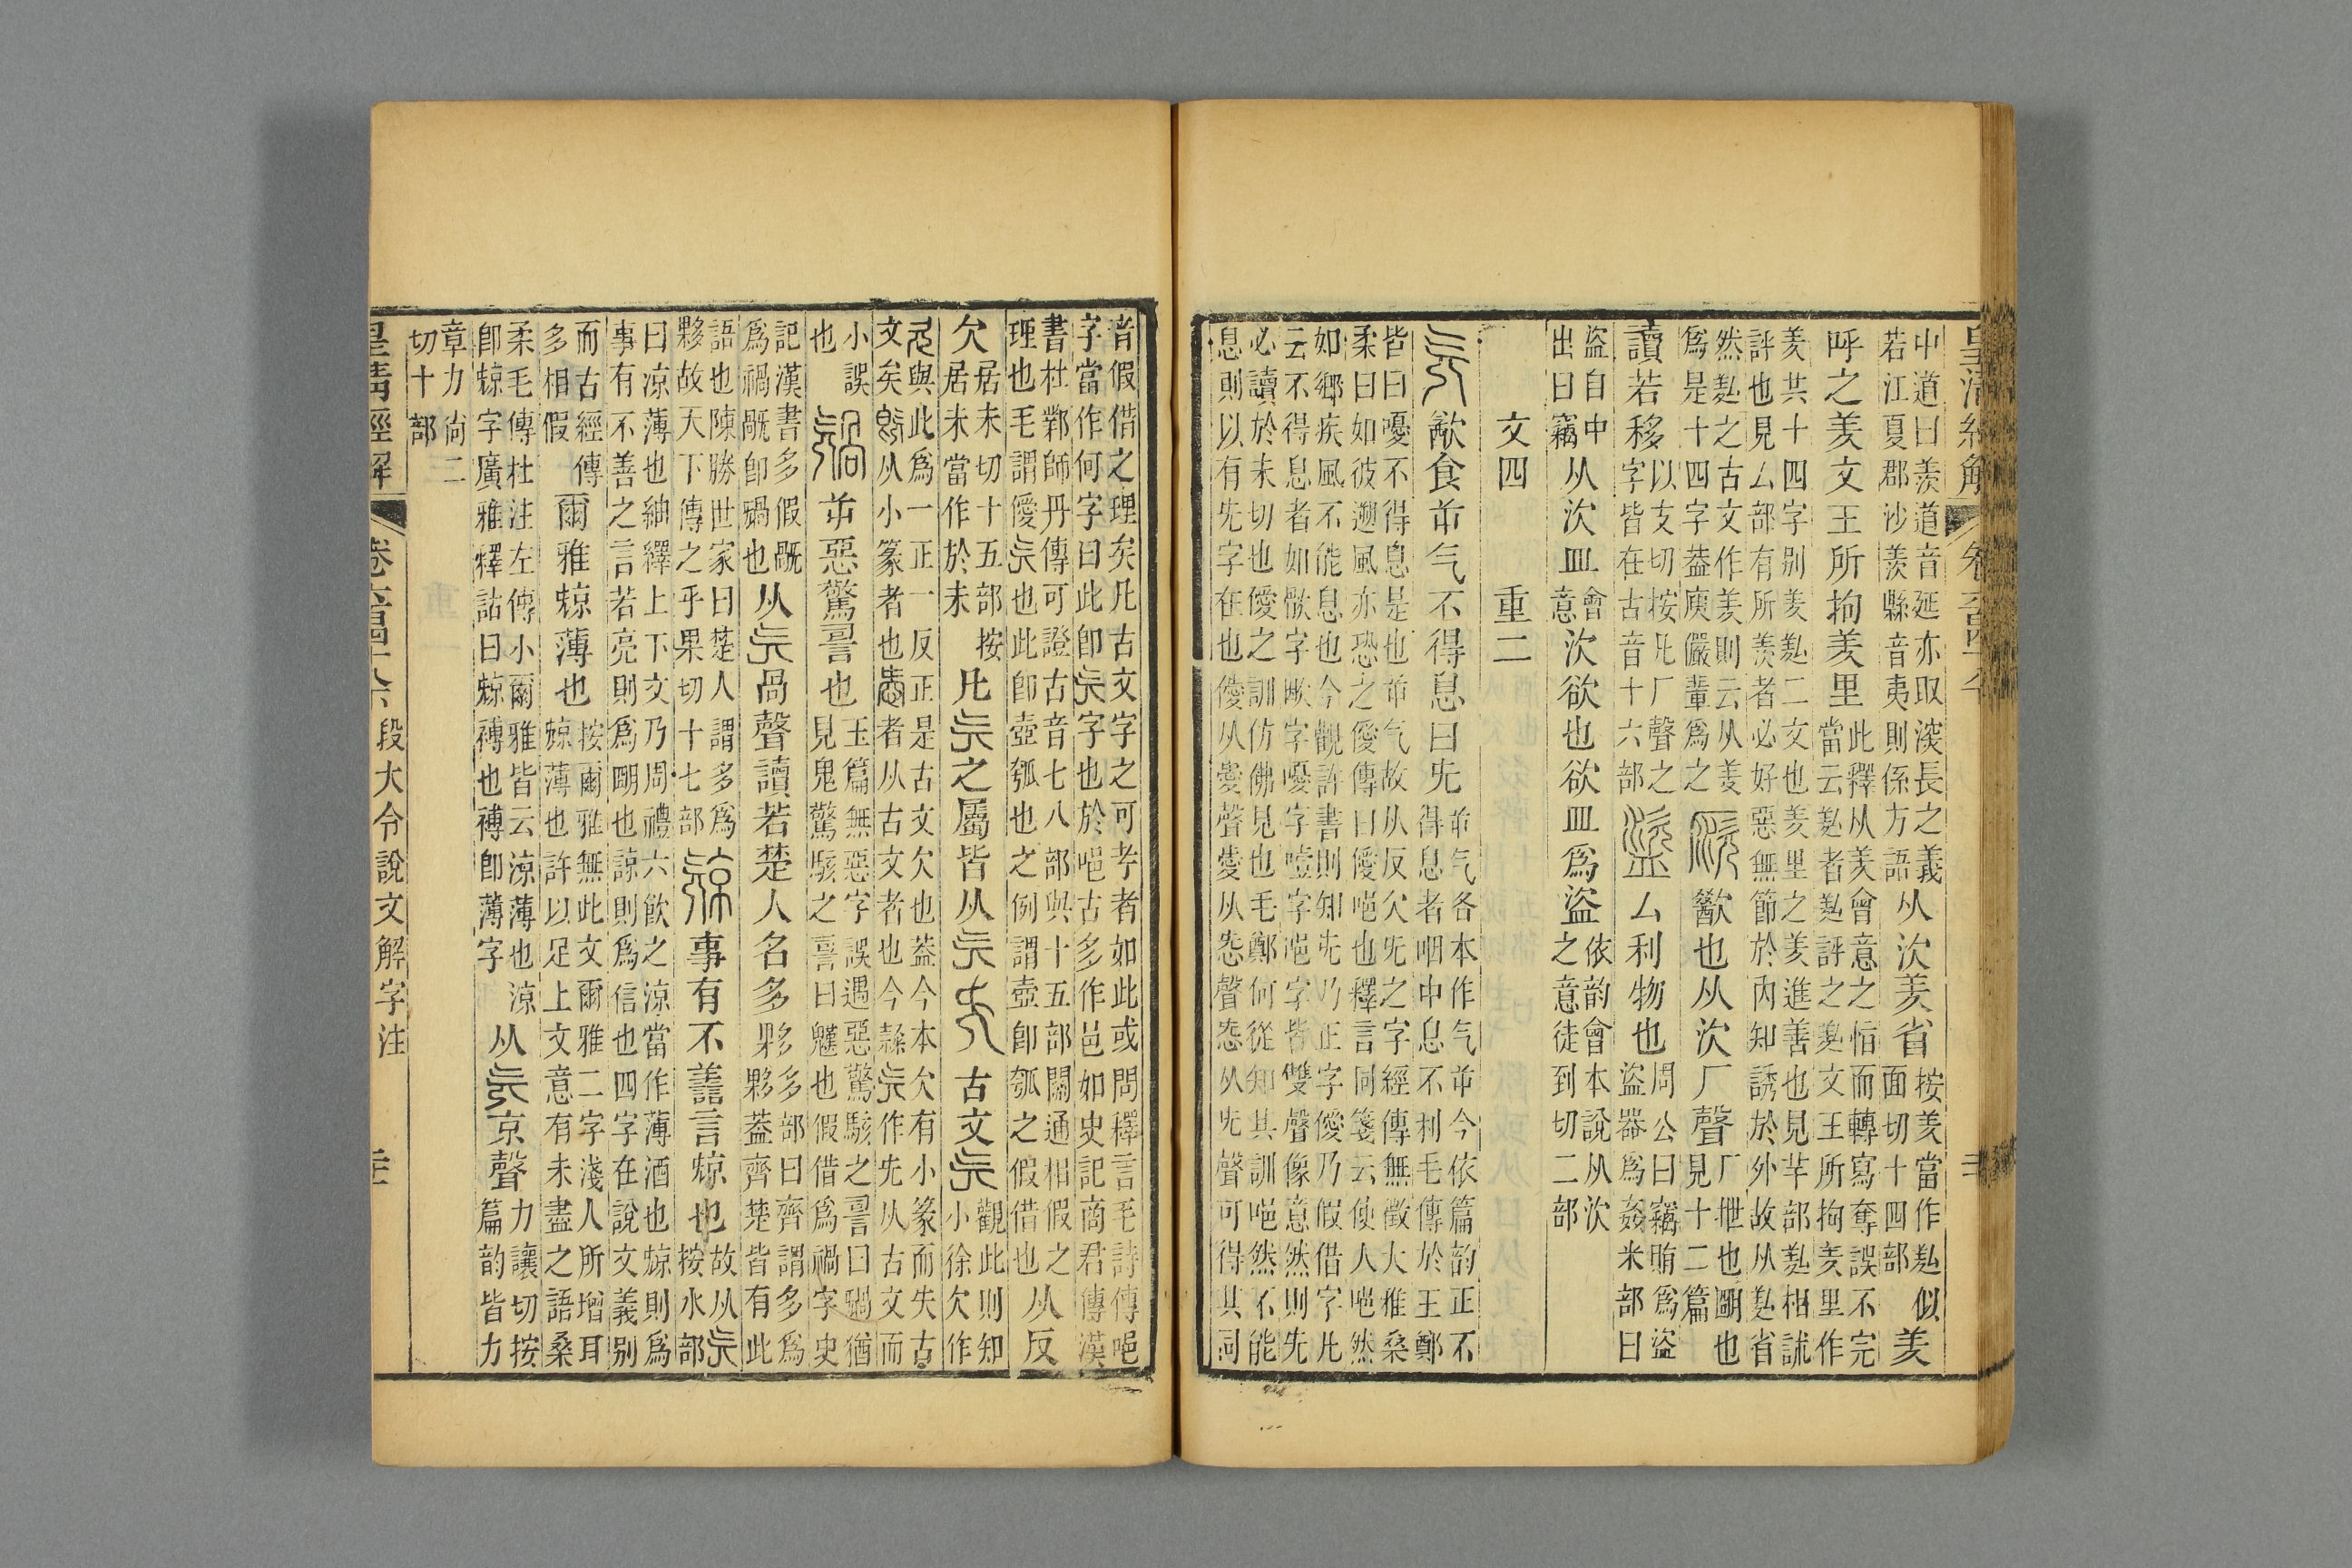 中道曰羨道音延亦取㳄長之義若江夏郡沙羨縣音夷則係方語从㳄羑省按羑當作䍽似面切十四部羑
呼之羑文王所拘羑里此釋从羑會意之恉而轉寫奪誤不完當云䍽者䍽評之䍽文王所拘羑里作
羑共十四字别羑䍽二文也羑里之羑進善也見羊部䍽相訹評也見厶部有所羨者必好惡無節於內知誘於外故从䍽省
然䍽之古文作羑則云从羑爲是十四字葢庾儼輩爲之歠也从㳄厂聲厂抴也明也見十二篇
讀若移以支切按凡厂聲之字皆在古音十六部盜厶利物也周公曰竊賄爲盜盜器爲姦米部曰
盜自中出曰竊从㳄皿會意㳄欲也欲皿爲盜依韵會本說从㳄之意徒到切二部
文四 重二
旡㱃食屰气不得息曰旡屰气各本作气屰今依篇韵正不得息者咽中息不利毛傳於王鄭
皆曰憂不得息是也屰气故从反欠旡之字經傳無徵大雅桑柔曰如彼遡風亦恐之僾傳曰僾唈也釋言同箋云使人唈然
如鄉疾風不能息也今觀許書則知旡乃正字僾乃假借字凡云不得息者如㰤字歍字嚘字噎字唈字皆雙聲像意然則旡
必讀於未切也僾之訓仿佛見也毛鄭何從知其訓唈然不能息則以有旡字在也僾从愛聲愛从㤅聲㤅从旡聲可得其同
音假借之理矣凡古文字之可考者如此或問釋言毛詩傳唈字當作何字曰此卽旡字也於唈古多作邑如史記商君傳漢
書杜鄴師丹傳可證古音七八部與十五部關通相假之理也毛謂僾旡也此卽壺瓠也之例謂壺卽瓠之假借也从反
欠居未切十五部按居未當作於未凡旡之屬皆从旡古文旡觀此則知小徐欠作
與此爲一正一反正是古文欠也葢今本欠有小篆而失古文矣旣从小篆者也㤅者从古文者也今隸旡作旡从古文而
小誤也屰惡驚䛐也玉篇無惡字誤遇惡驚駭之䛐曰𣄸猶見鬼驚駭之䛐曰魖也假借爲禍字史
記漢書多假旤爲禍旤卽𣄸也从旡咼聲讀若楚人名多夥多部曰齊謂多爲夥葢齊楚皆有此
語也陳勝世家曰楚人謂多爲夥故天下傳之乎果切十七部事有不善言㹁也故从旡按水部
曰涼薄也紬繹上下文乃周禮六飮之涼當作薄酒也㹁則爲事有不善之言若亮則爲明也諒則爲信也四字在說文義别
而古經傳多相假爾雅㹁薄也按爾雅無此文爾雅二字淺人所增耳㹁薄也許以足上文意有未盡之語桑
柔毛傳杜注左傳小爾雅皆云涼薄也涼卽㹁字廣雅釋詁曰㹁䙏也䙏卽薄字从旡京聲力讓切按篇韵皆力
章力尙二切十部
皇清經解 卷六百四十八下 段大令說文解字注